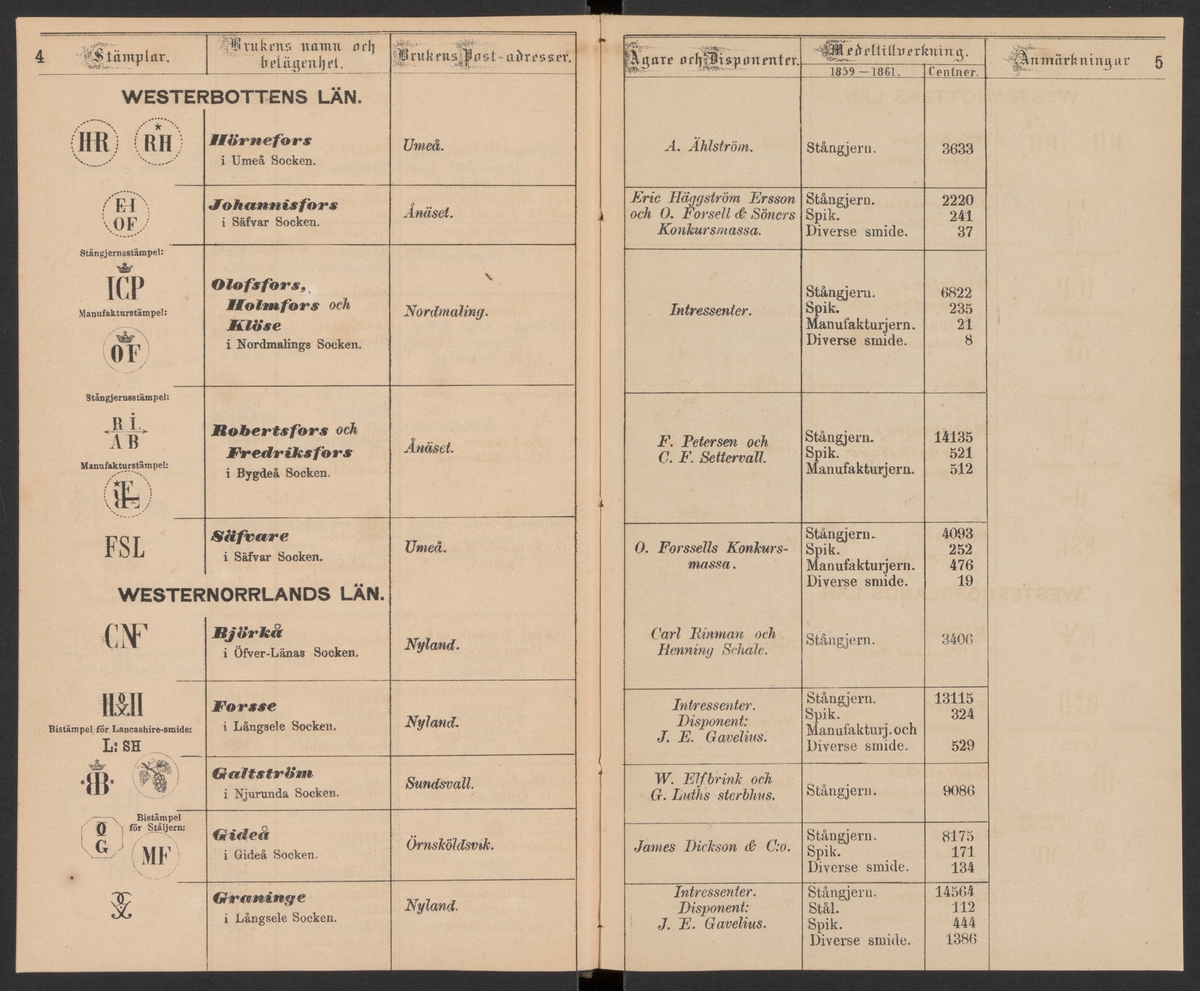 4
Stämplar.
Brukens namn och
belägenhet.
Brukens Post-adresser.
WESTERBOTTENS LÄN.
HR RH
Hörnefors
i Umeå Socken.
Umeå.
E I
OF
Johannisfors
i Säfvar Socken.
Ånäset.
Stångjernsstämpel:
ICP
Manufakturstämpel:
OF
Olofsfors,
Holmfors och
Klöse
i Nordmalings Socken.
Nordmaling.
Stångjernsstämpel:
R I
A B
Manufakturstämpel:
Robertsfors och
Fredriksfors
i Bygdeå Socken.
Ånäset.
FSL
Säfvare
i Säfvar Socken.
Umeå.
WESTERNORRLANDS LÄN.
CNF
Björkå
i Öfver-Länas Socken.
Nyland.
Bistämpel för Lancashire-smide:
L: SH
Forsse
i Långsele Socken.
Nyland.
Galtström
i Njurunda Socken.
Sundsvall.
O
G
Bistämpel
för Ståljern:
MF
Gideå
i Gideå Socken.
Örnsköldsvik.
Graninge
i Långsele Socken.
Nyland.
Ägare och Disponenter.
Medeltillverkning.
1859—1861. Centner.
Anmärkningar
5
A. Åhlström.
Stångjern. 3633
Eric Häggström Ersson
och O. Forsell & Söners
Konkursmassa.
Stångjern. 2220
Spik. 241
Diverse smide. 37
Intressenter.
Stångjern. 6822
Spik. 235
Manufakturjern. 21
Diverse smide. 8
F. Petersen och
C. F. Settervall.
Stångjern. 14135
Spik. 521
Manufakturjern. 512
O. Forssells Konkurs-
massa.
Stångjern. 4093
Spik. 252
Manufakturjern. 476
Diverse smide. 19
Carl Rinman och
Henning Schale.
Stångjern. 3406
Intressenter.
Disponent:
J. E. Gavelius.
Stångjern. 13115
Spik. 324
Manufakturj. och
Diverse smide. 529
W. Elfbrink och
G. Luths sterbhus.
Stångjern. 9086
James Dickson & C:o.
Stångjern. 8175
Spik. 171
Diverse smide. 134
Intressenter.
Disponent:
J. E. Gavelius.
Stångjern. 14564
Stål. 112
Spik. 444
Diverse smide. 1386